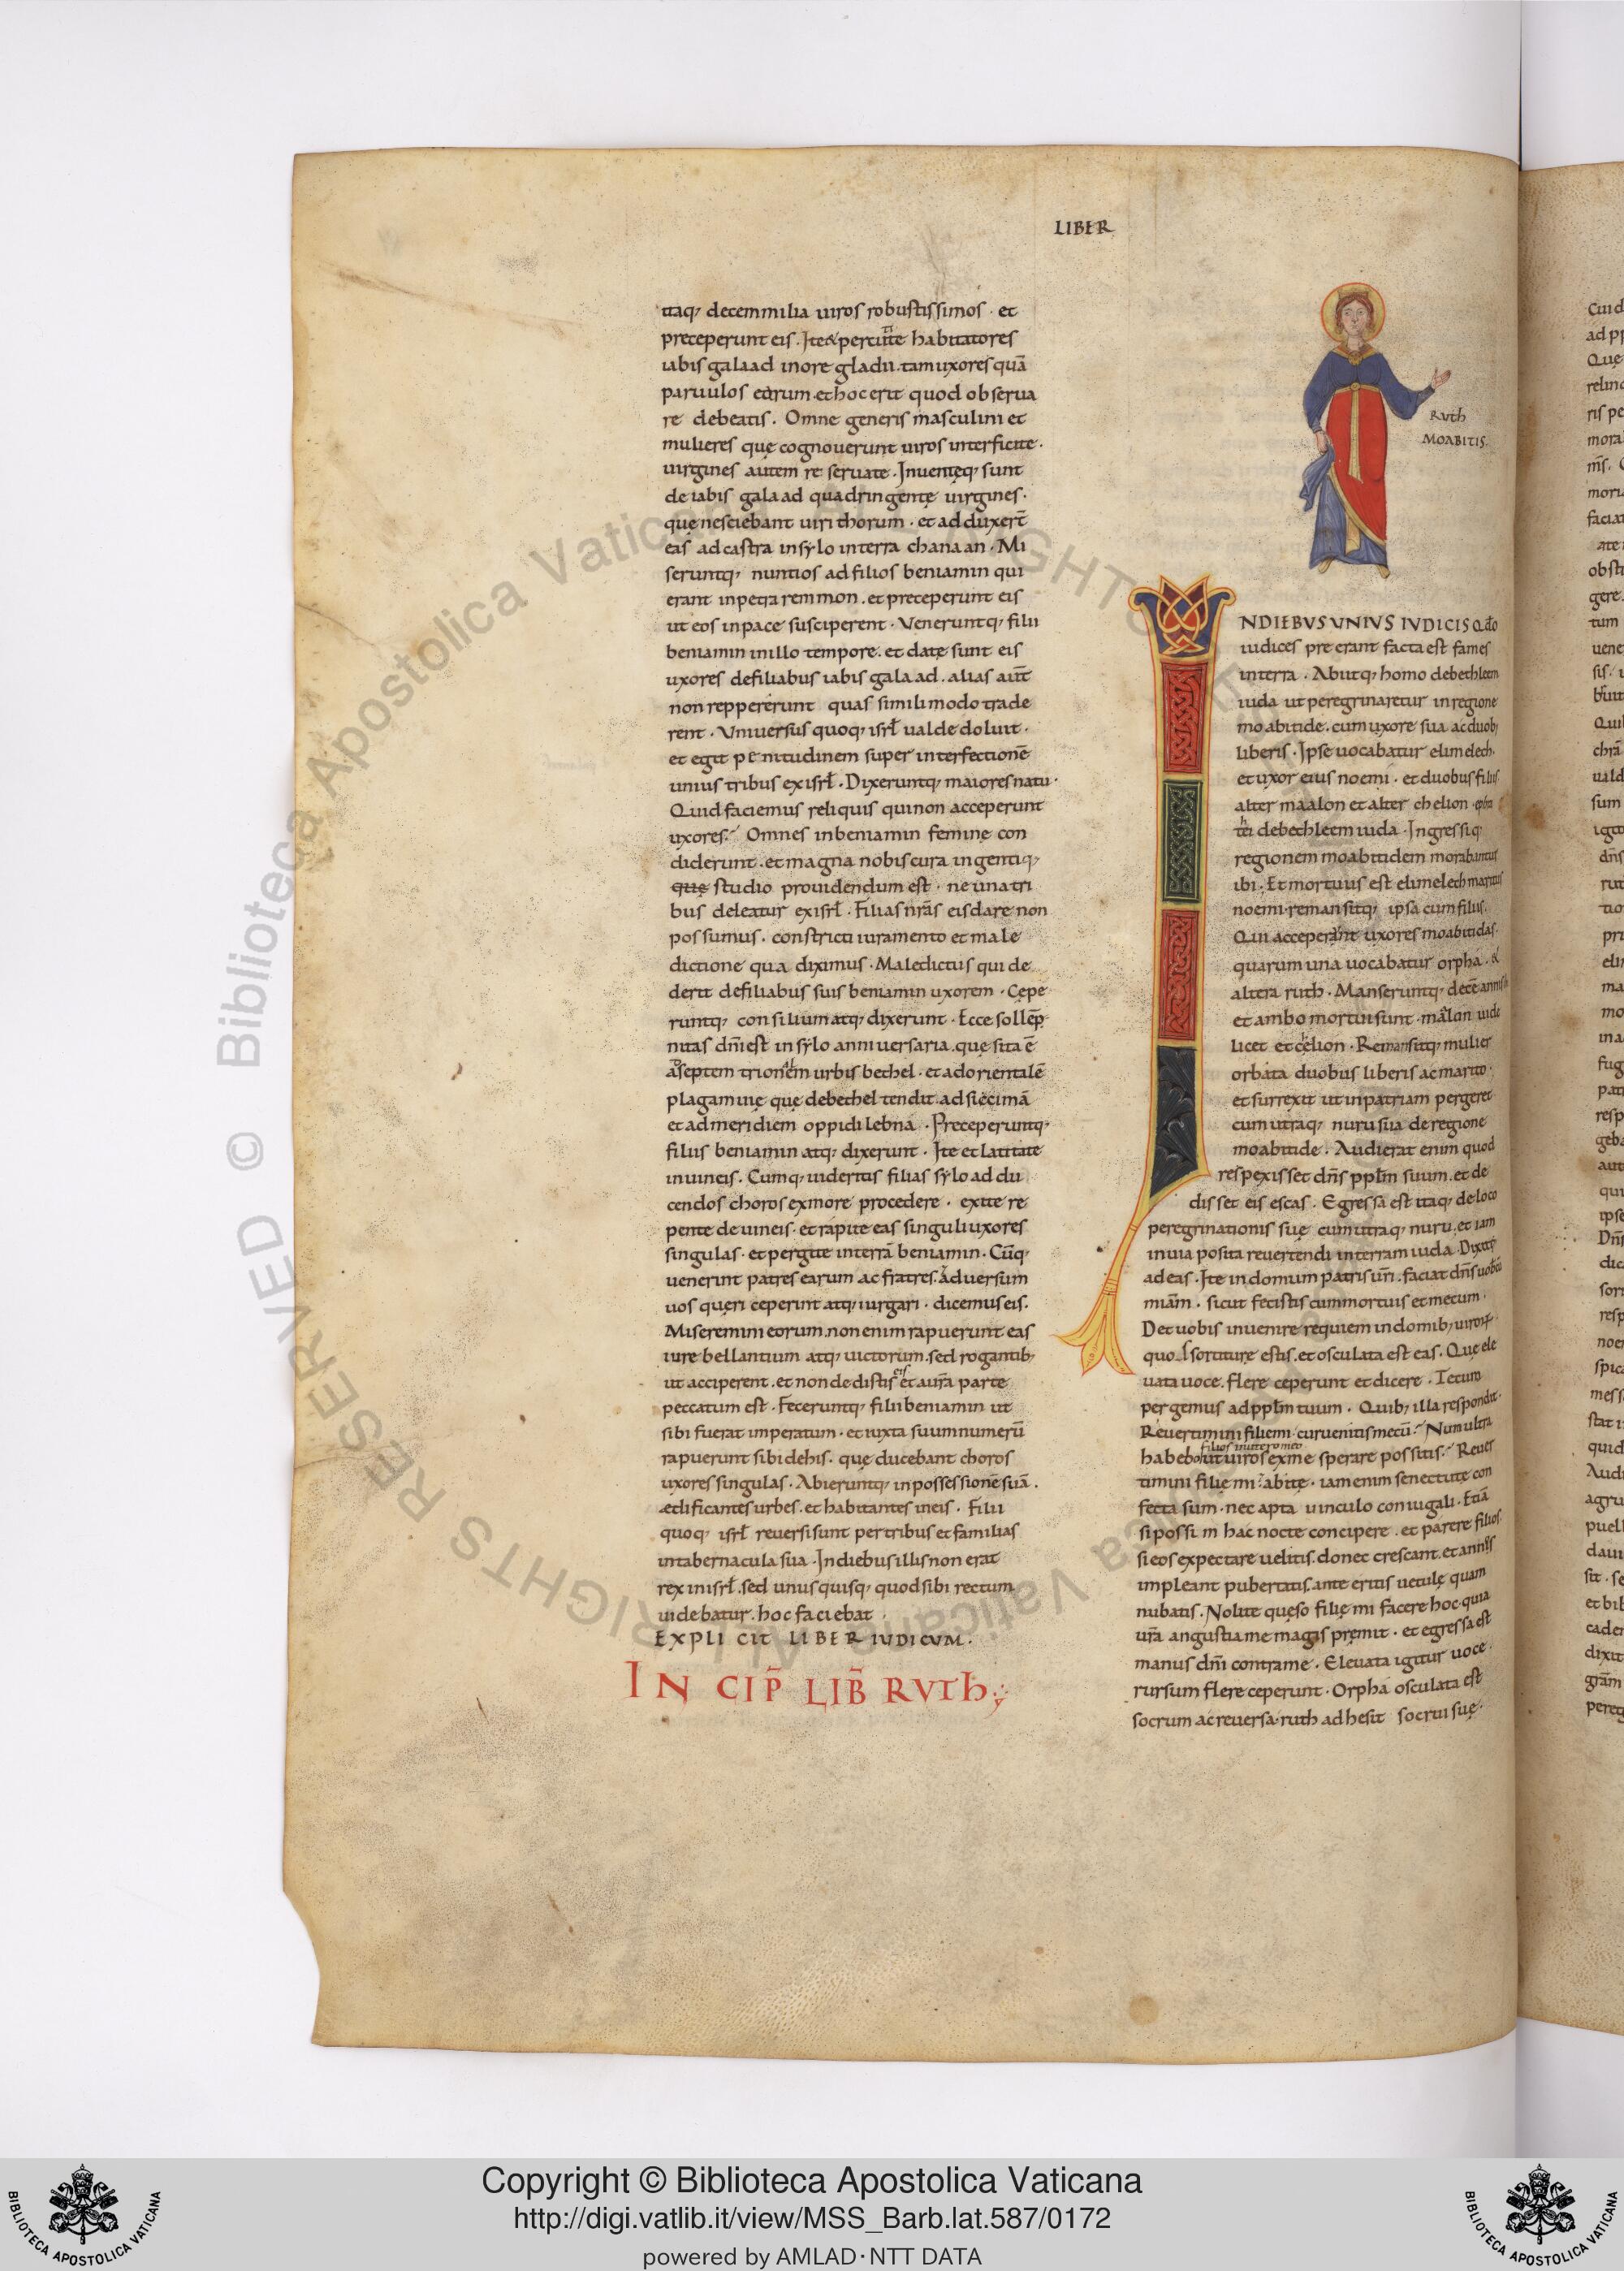 LIBER
itaq; decem milia uiros robustissimos · et
preceperunt eis . Ite & percutite habitatores
iabis galaad in ore gladii . tam uxores quā
paruulos eorum . et hoc erit quod obserua
re debeatis . Omne generis masculini et
mulieres quę cognouerunt uiros interficite .
uirgines autem reseruate . Inuentęq; sunt
de iabis galaad quadringentę uirgines .
quę nesciebant uiri thorum . et adduxert̄
eas ad castra in sylo in terra chanaan . Mi
seruntq; nuntios ad filios beniamin qui
erant in petra remmon . et preceperunt eis
ut eos in pace susciperent . Veneruntq; filii
beniamin in illo tempore . et datę sunt eis
uxores de filiabus iabis galaad . alias aūt
non reppererunt quas simili modo trade
rent . Vniuersus quoq; isrł ualde doluit .
et egit penitudinem super interfectionē
unius tribus ex isrł . Dixeruntq; maiores natu .
Quid faciemus reliquis qui non acceperunt
uxores? Omnes in beniamin feminę con
diderunt . et magna nobis cura ingentiq;
quę studio prouidendum est . ne una tri
bus deleatur ex isrł . Filias nrās eis dare non
possumus . constricti iuramento et male
dictione qua diximus . Maledictus qui de
derit de filiabus suis beniamin uxorem . Cępe
runtq; consilium atq; dixerunt . Ecce sollēp
nitas dn̄i est in sylo anniuersaria . quę sita ē
a septemtrionem urbis bethel . et ad orientalē
plagam uię quę de bethel tendit ad siccimā
et ad meridiem oppidi lebna . Preceperuntq;
filiis beniamin atq; dixerunt . Ite et latitate
in uineis . Cumq; uideritis filias sylo ad du
cendos choros ex more procedere . exite re
pente de uineis . et rapite eas singuli uxores
singulas . et pergite in terrā beniamin . Cūq;
uenerint patres earum ac fratres . aduersum
uos queri ceperint atq; iurgari . dicemus eis .
Miseremini eorum . non enim rapuerunt eas
iure bellantium atq; uictorum . sed rogantib;
ut acciperent . et non dedistis eis et a ur̄a parte
peccatum est . Feceruntq; filii beniamin ut
sibi fuerat imperatum . et iuxta suum numerū
rapuerunt sibi de his . quę ducebant choros
uxores singulas . Abieruntq; in possessionē suā .
ędificantes urbes . et habitantes in eis . Filii
quoq; isrł reuersi sunt per tribus et familias
in tabernacula sua . In diebus illis non erat
rex in isrł . sed unusquisq; quod sibi rectum
uidebatur . hoc faciebat .
EXPLICIT LIBER IUDICVM .
IN CIP̄ LIB̄ RVTH
RVTH
MOABITIS.
NDIEBVS VNIVS IVDICIS Qdo
iudices preerant facta est fames
in terra . Abiitq; homo de bethleem
iuda ut peregrinaretur in regione
moabitide . cum uxore sua ac duob;
liberis . Ipse uocabatur elimelech .
et uxor eius noemi . et duobus filiis
alter maalon et alter chelion . ephra
thei de bethleem iuda . Ingressiq;
regionem moabitidem morabantur
ibi . Et mortuus est elimelech maritus
noemi . remansitq; ipsa cum filiis .
Qui acceperant uxores moabitidas .
quarum una uocabatur orpha . &
altera ruth . Manseruntq; decē annis
et ambo mortui sunt . maalon uide
licet et chelion . Remansitq; mulier
orbata duobus liberis ac marito .
et surrexit ut in patriam pergeret
cum utraq; nuru sua de regione
moabitide . Audierat enim quod
respexisset dn̄s ppłm suum . et de
disset eis escas . Egressa est itaq; de loco
peregrinationis suę cum utraq; nuru . et iam
in uia posita reuertendi in terram iuda . Dixit
ad eas . Ite in domum patris ur̄i . faciat dn̄s uobcū
miām . sicut fecistis cum mortuis et mecum .
Det uobis inuenire requiem in domib; uiroꝝ
quos sortiturę estis . et osculata est eas . Quę ele
uata uoce . flere ceperunt et dicere . Tecum
pergemus ad ppłm tuum . Quib; illa respondit .
Reuertimini filię mi . cur uenitis mecū? Num ultra
filios in utero meo
habebo ut uiros ex me sperare possitis? Reuer
timini filię mi abite . iam enim senectute con
fecta sum . nec apta uinculo coniugali . Etiā
si possim hac nocte concipere . et parere filios
si eos expectare uelitis . donec crescant . et annos
impleant pubertatis . ante eritis uetulę quam
nubatis . Nolite quęso filię mi facere hoc . quia
ur̄a angustia me magis pręmit . et egressa est
manus dn̄i contra me . Eleuata igitur uoce .
rursum flere ceperunt . Orpha osculata est
socrum ac reuersa . ruth adhesit socrui suę .
Copyright © Biblioteca Apostolica Vaticana
http://digi.vatlib.it/view/MSS_Barb.lat.587/0172
powered by AMLAD·NTT DATA
BIBLIOTECA APOSTOLICA VATICANA
BIBLIOTECA APOSTOLICA VATICANA